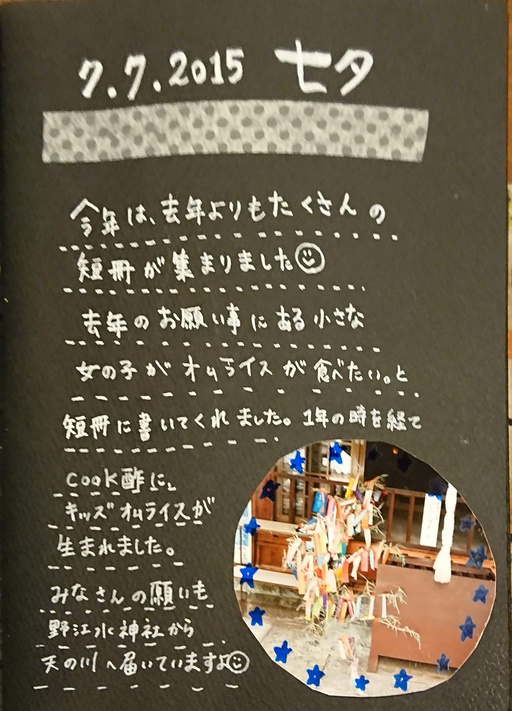 7.7.2015 七夕
今年は、去年よりもたくさんの
短冊が集まりました
去年のお願い事にある小さな
女の子がオムライスが食べたい。と
短冊に書いてくれました。1年の時を経て
COOK酢に、
キッズオムライスが
生まれました。
みなさんの願いも
野江水神社から
天の川へ届いていますよ